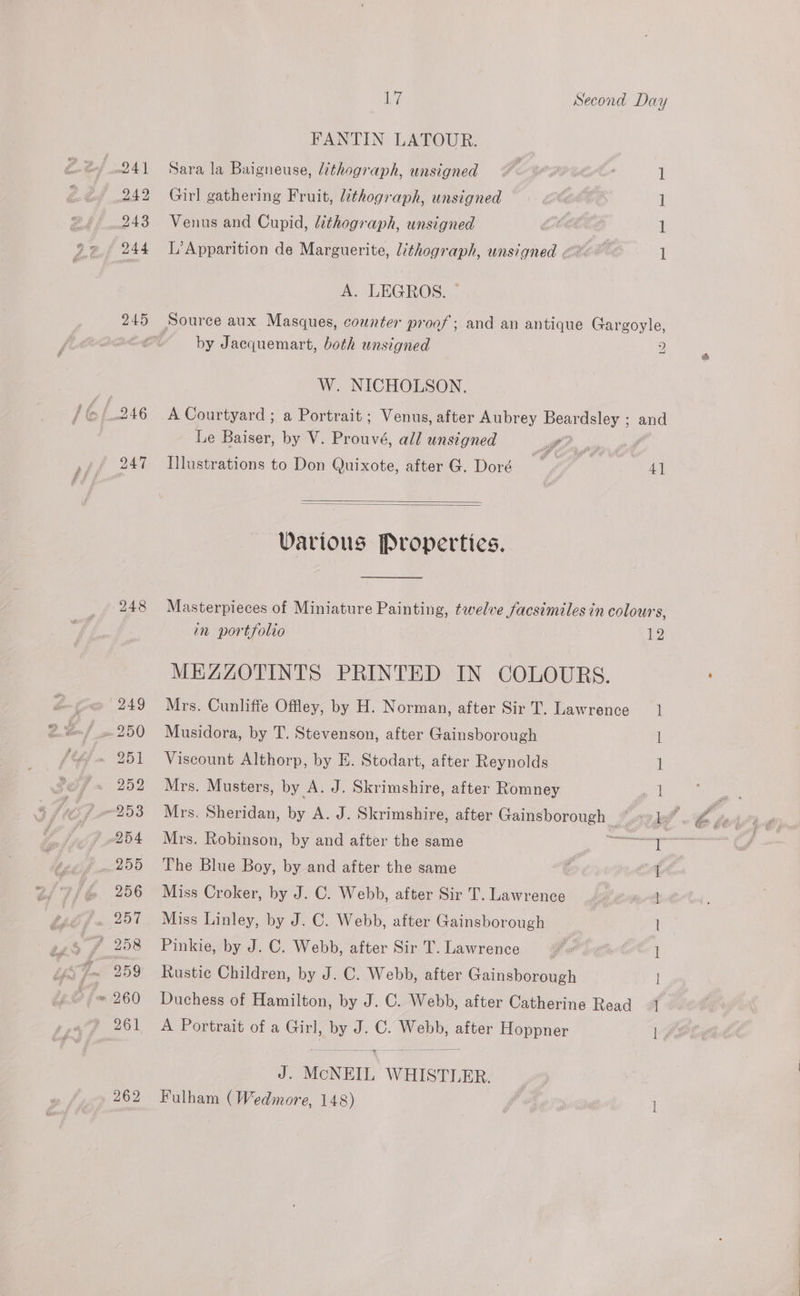 17 Second Day
FANTIN LATOUR.
241 Sara la Baigneuse, lithograph, unsigned 1
242 Girl gathering Fruit, lithograph, unsigned 1
243 Venus and Cupid, lithograph, unsigned 1
244 L'Apparition de Marguerite, lithograph, unsigned 1
A. LEGROS.
245 Source aux Masques, counter proof; and an antique Gargoyle,
by Jacquemart, both unsigned 2
W. NICHOLSON.
246 A Courtyard; a Portrait; Venus, after Aubrey Beardsley; and
Le Baiser, by V. Prouvé, all unsigned
247 Illustrations to Don Quixote, after G. Doré 41
Various Properties.
248 Masterpieces of Miniature Painting, twelve facsimiles in colours,
in portfolio 12
MEZZOTINTS PRINTED IN COLOURS.
249 Mrs. Cunliffe Offley, by H. Norman, after Sir T. Lawrence 1
250 Musidora, by T. Stevenson, after Gainsborough 1
251 Viscount Althorp, by E. Stodart, after Reynolds 1
252 Mrs. Musters, by A. J. Skrimshire, after Romney 1
253 Mrs. Sheridan, by A. J. Skrimshire, after Gainsborough 1
254 Mrs. Robinson, by and after the same 1
255 The Blue Boy, by and after the same 1
256 Miss Croker, by J. C. Webb, after Sir T. Lawrence 1
257 Miss Linley, by J. C. Webb, after Gainsborough 1
258 Pinkie, by J. C. Webb, after Sir T. Lawrence 1
259 Rustic Children, by J. C. Webb, after Gainsborough 1
260 Duchess of Hamilton, by J. C. Webb, after Catherine Read 1
261 A Portrait of a Girl, by J. C. Webb, after Hoppner 1
J. McNEIL WHISTLER.
262 Fulham (Wedmore, 148) 1